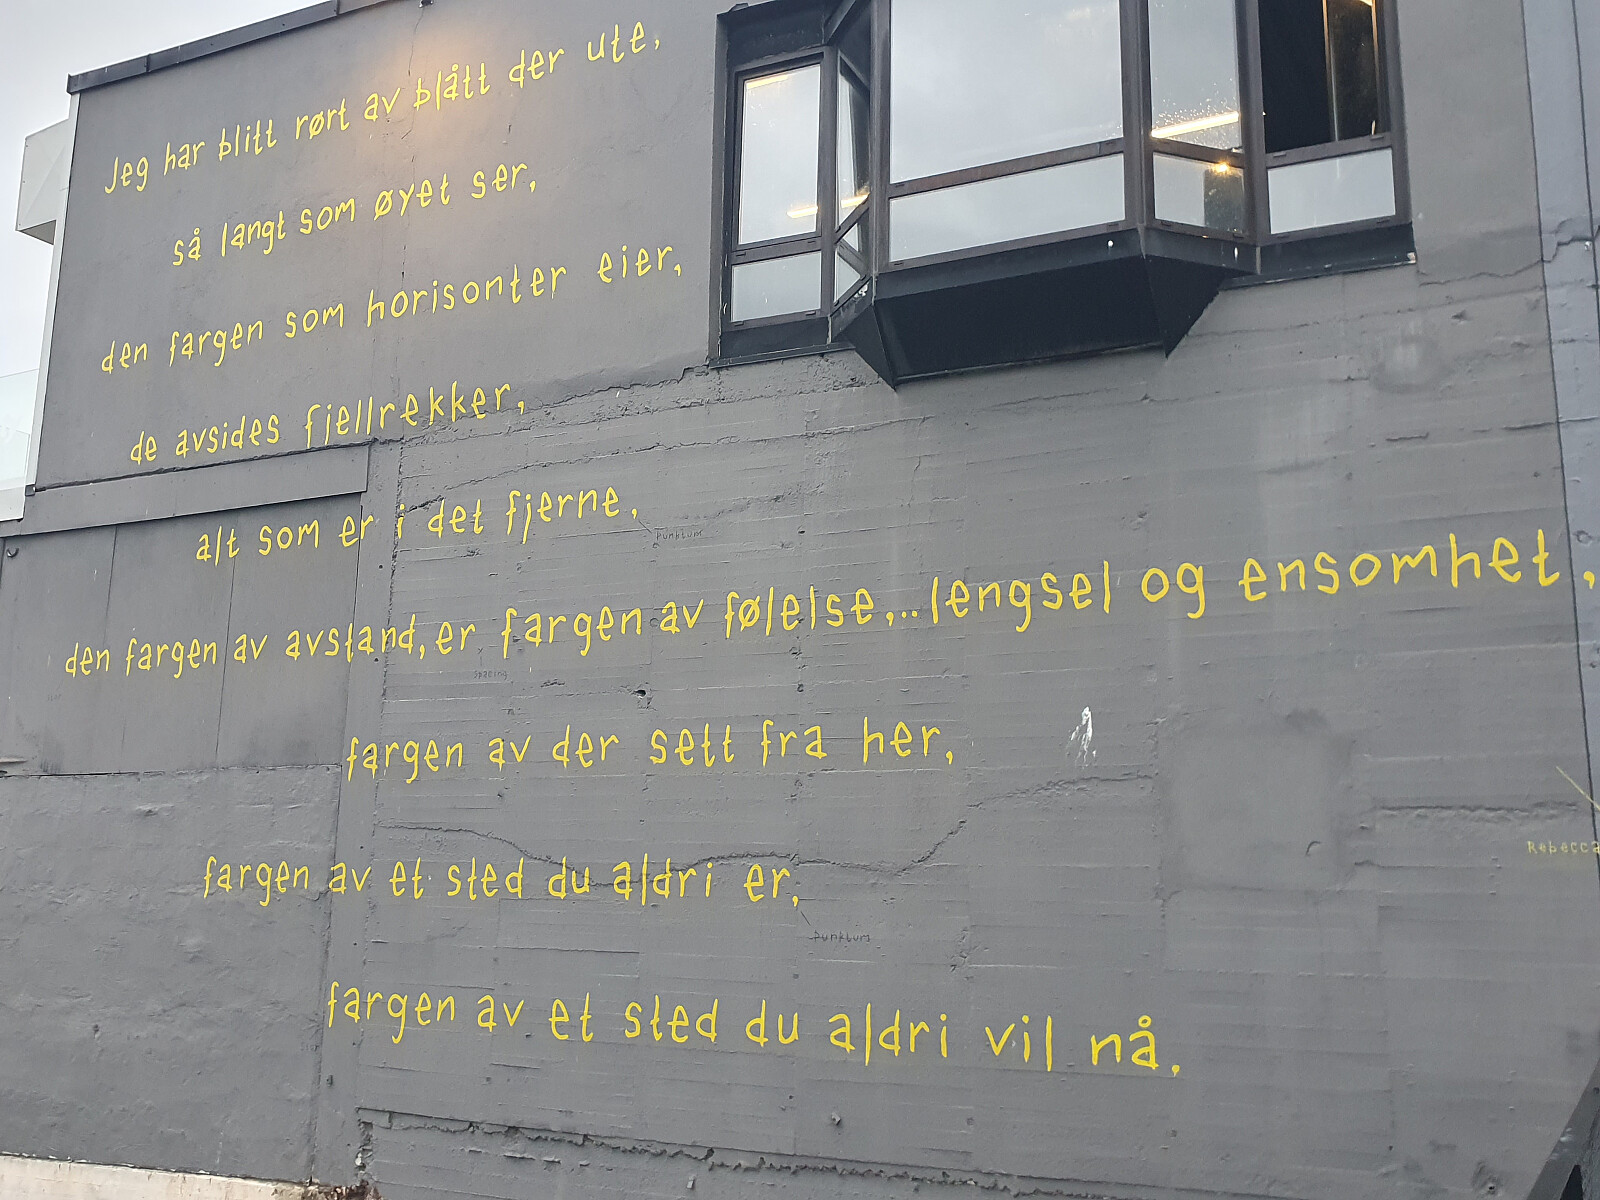 Jeg har blitt rørt av blått der ute,
så langt som øyet ser,
den fargen som horisonter eier,
de avsides fjellrekker,
alt som er i det fjerne,
punktum
den fargen av avstand, er fargen av følelse,.. lengsel og ensomhet,
spacing
fargen av der sett fra her,
Rebecca
fargen av et sted du aldri er,
punktum
fargen av et sted du aldri vil nå.